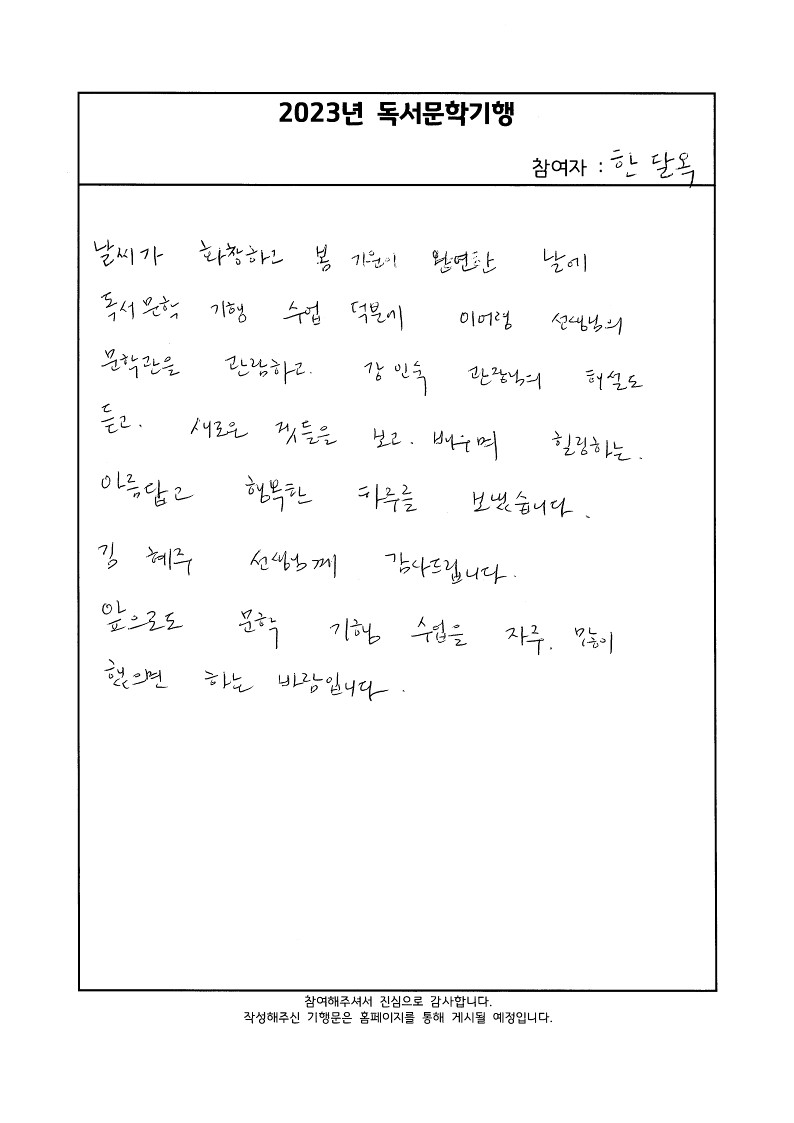 2023년 독서문학기행
참여자 : 한 달옥
날씨가 화창하고 봄 기운이 완연한 날에
독서문학 기행 수업 덕분에 이어령 선생님의
문학관을 관람하고. 강인숙 관장님의 해설도
듣고. 새로운 것들을 보고. 배우며 힐링하는.
아름답고 행복한 하루를 보냈습니다.
김 혜주 선생님께 감사드립니다.
앞으로도 문학 기행 수업을 자주. 많이
했으면 하는 바람입니다.
참여해주셔서 진심으로 감사합니다.
작성해주신 기행문은 홈페이지를 통해 게시될 예정입니다.